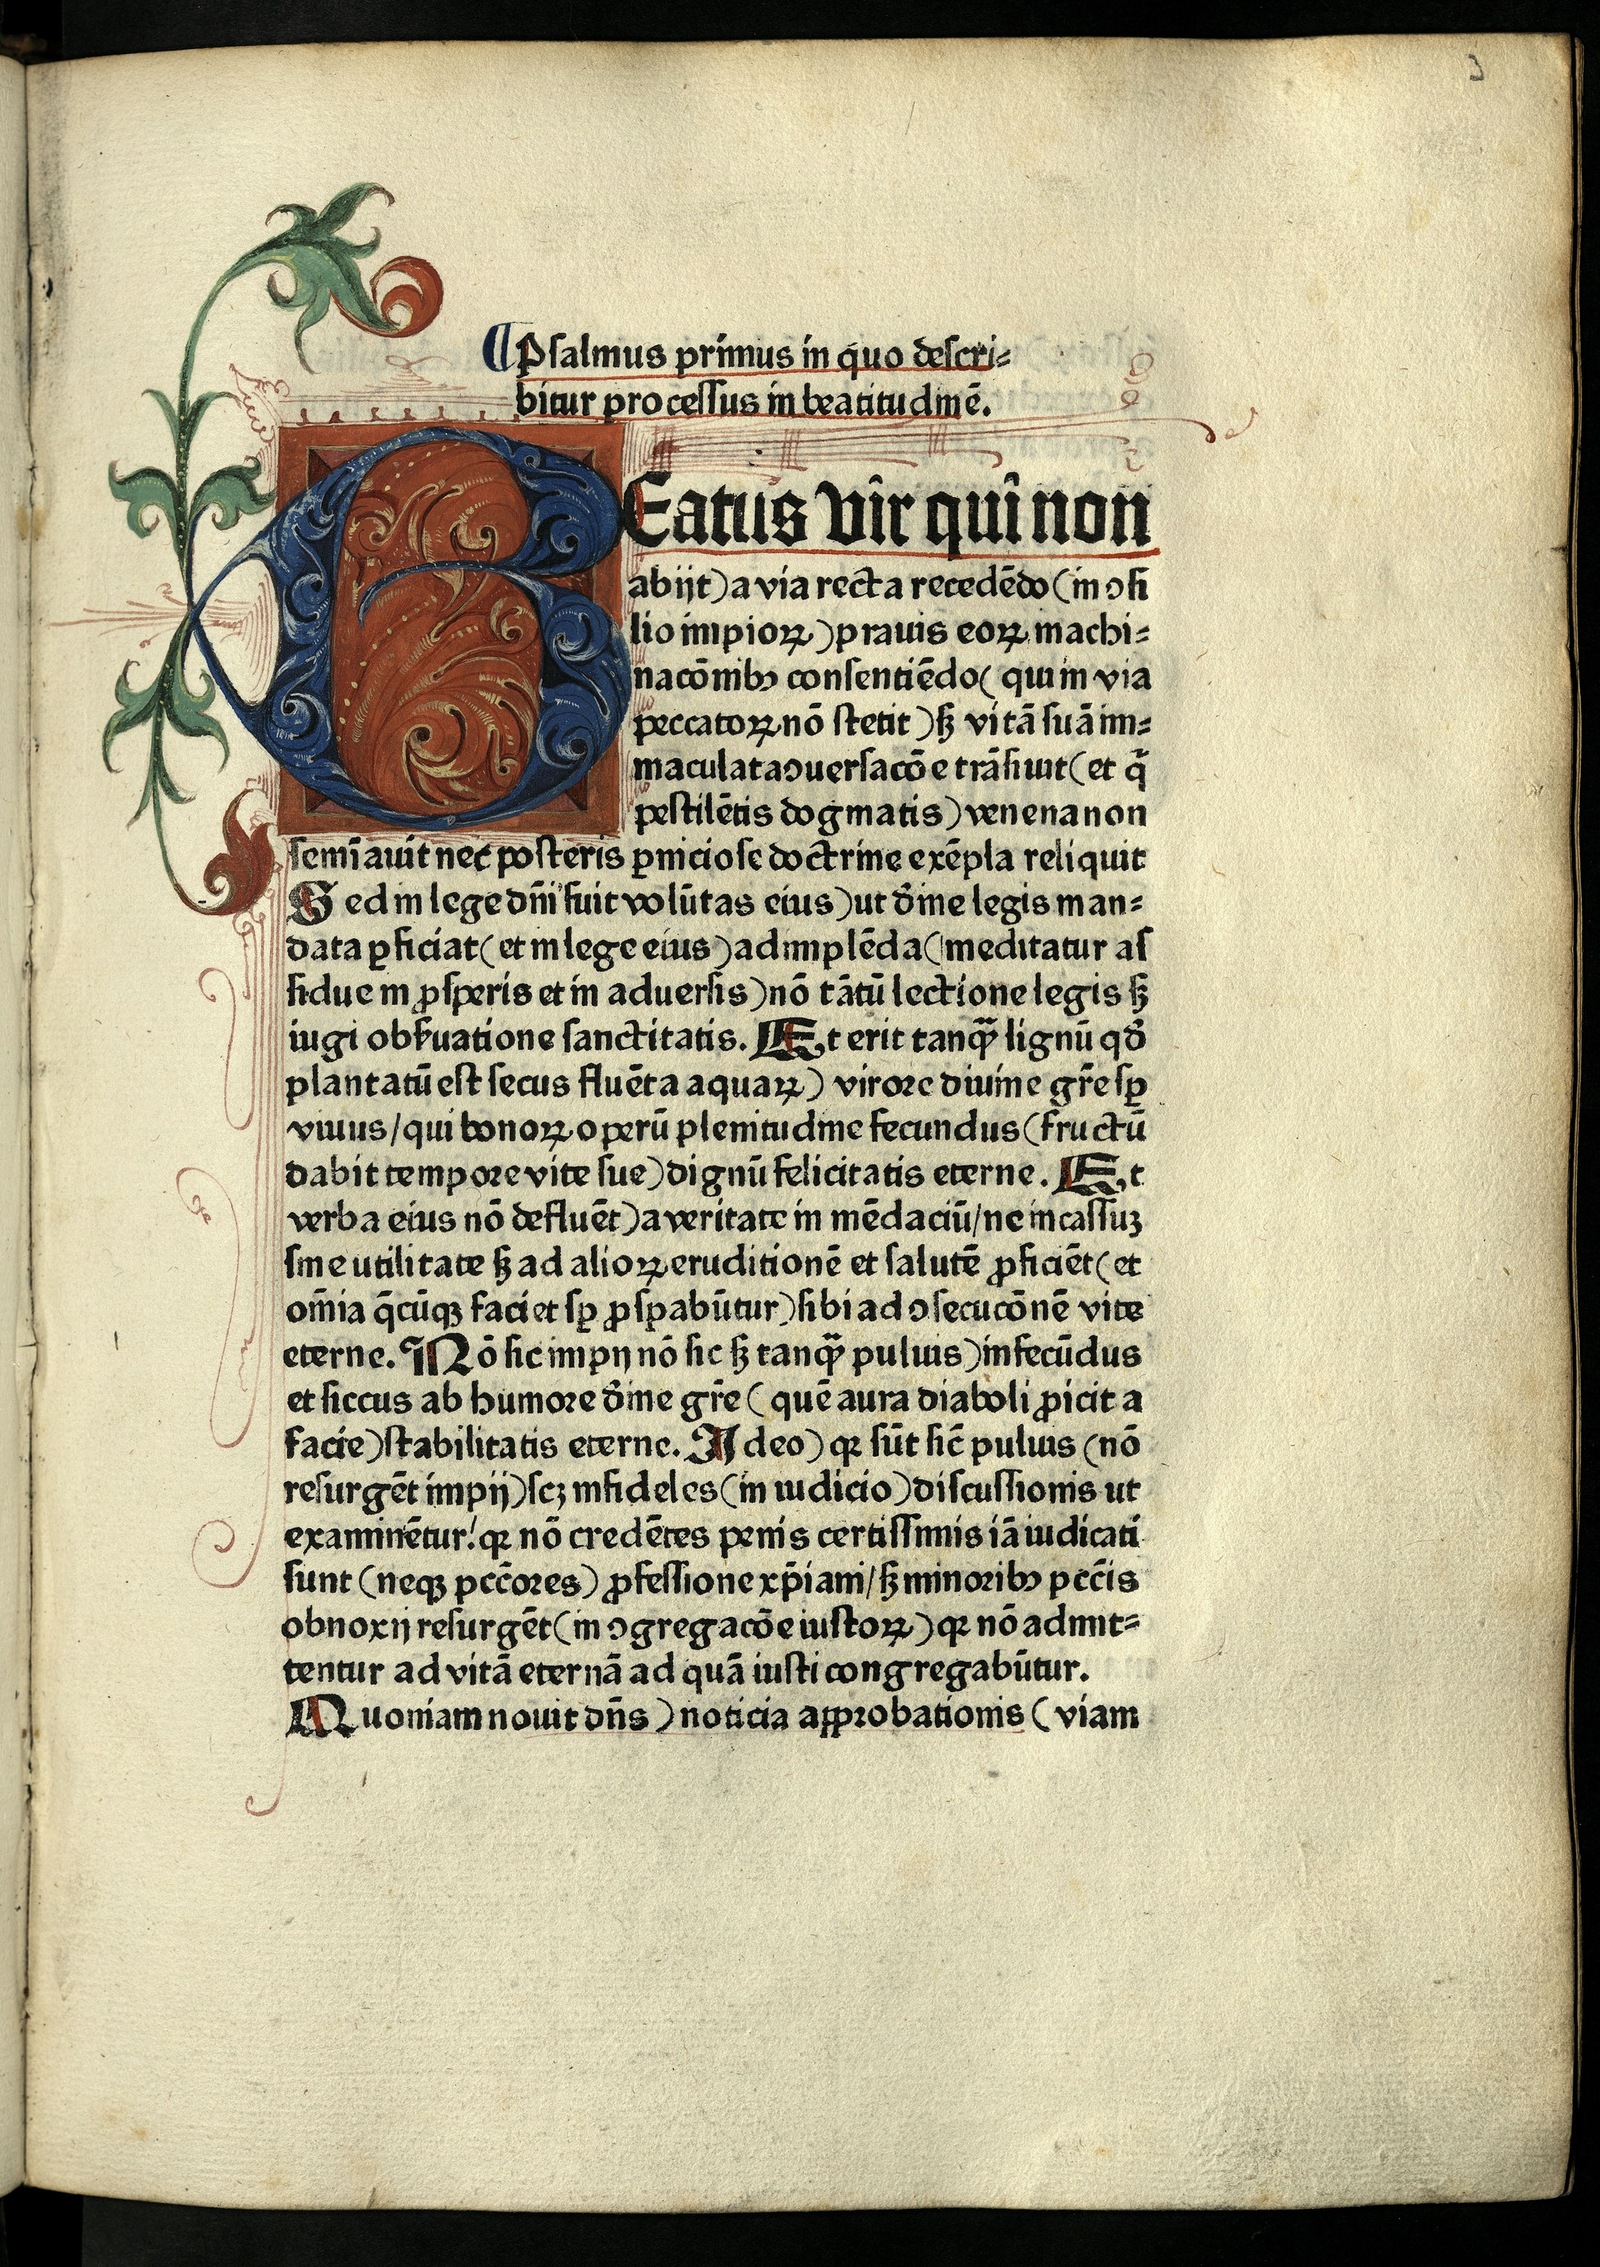 3
¶Psalmus primus in quo descri⸗
bitur processus in beatitudinē.
BEatus vir qui non
abijt) a via recta recedēdo (in ↄsi
lio impioꝝ) prauis eoꝝ machi⸗
nacōnibꝫ consentiēdo( qui in via
peccatoꝝ nō stetit ) sꝫ vitā suā im⸗
maculata ↄuersacōe trāsiuit (et q̄
pestilētis dogmatis) venena non
semīauit nec posteris ꝑniciose doctrine exēpla reliquit
Sed in lege dn̄i fuit volūtas eius) ut dīne legis man⸗
data ꝑficiat (et in lege eius) ad implēda (meditatur as
sidue in ꝓsperis et in aduersis) nō tātū lectione legis sꝫ
iugi obẜuatione sanctitatis. Et erit tanqꝫ lignū qd̄
plantatū est secus fluēta aquaꝝ ) virore diuine gr̄e sꝑ
viuus / qui bonoꝝ operū plenitudine fecundus (fructū
dabit tempore vite sue) dignū felicitatis eterne. Et
verba eius nō defluēt) a veritate in mēdaciū / ne incassuꝫ
sine utilitate sꝫ ad alioꝝ eruditionē et salutē ꝓficiēt (et
om̄ia q̄cūqꝫ faciet sꝑ ꝓsꝑabūtur) sibi ad ↄsecucōnē vite
eterne. ¶Nō sic impij nō sic sꝫ tanqꝫ puluis) infecūdus
et siccus ab humore dīne gr̄e ( quē aura diaboli ꝓicit a
facie) stabilitatis eterne. Ideo) qꝛ sūt sic̄ puluis (nō
resurgēt impij) scꝫ infideles (in iudicio) discussionis ut
examinētur! qꝛ nō credētes penis certissimis iā iudicati
sunt (neqꝫ pcc̄ores) ꝓfessione xp̄iani / sꝫ minoribꝫ pcc̄is
obnoxij resurgēt (in ↄgregacōe iustoꝝ ) qꝛ nō admit⸗
tentur ad vitā eternā ad quā iusti congregabūtur.
Quoniam nouit dn̄s ) noticia approbationis ( viam